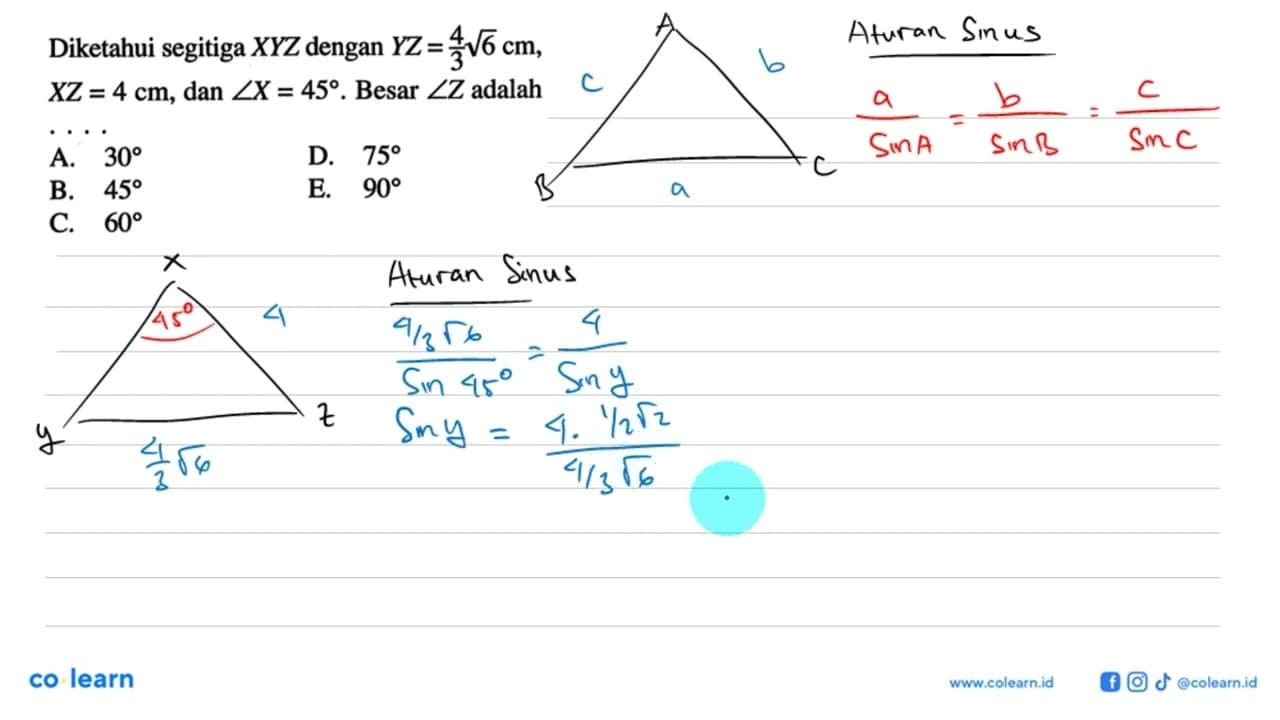 Diketahui segitiga XYZ dengan YZ = 4/3 √6 cm,
XZ = 4 cm, dan ∠X = 45°. Besar ∠Z adalah
. . . .
A. 30°
B. 45°
C. 60°
D. 75°
E. 90°
A
B
C
c
b
a
Aturan Sinus
a/Sin A = b/Sin B = c/Sin C
X
45°
4
y
z
4/3 √6
Aturan Sinus
4/3 √6 / Sin 45° = 4 / Sin y
Sin y = 4 . 1/2 √2 / 4/3 √6
co learn
www.colearn.id
@colearn.id